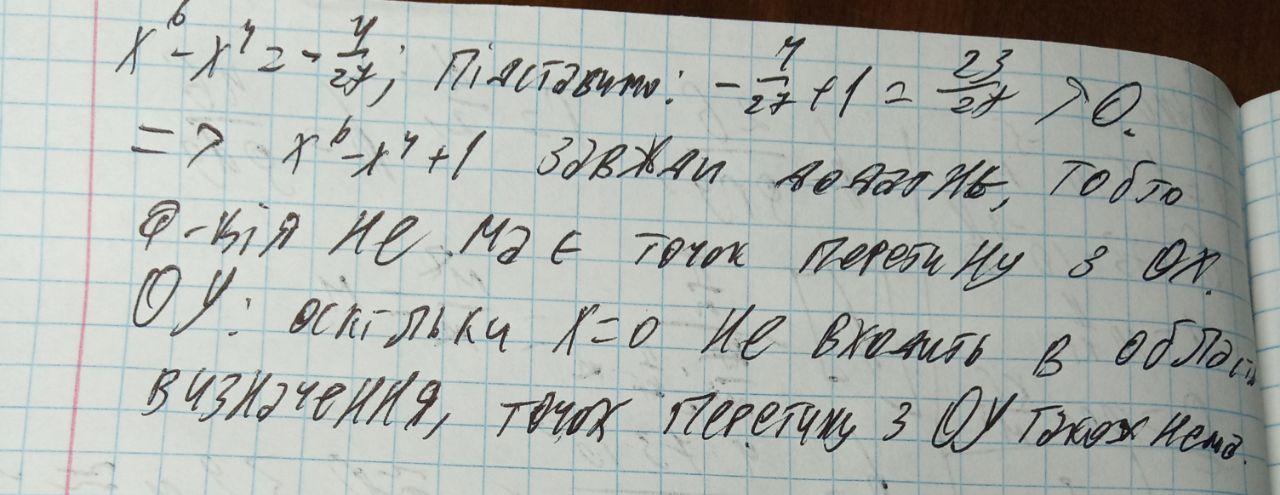 x⁶ - x⁴ = - 4/27; Підставимо: - 4/27 + 1 = 23/27 > 0.
=> x⁶ - x⁴ + 1 завжди додатнє, тобто
Ф-кія не має точок перетину з OX.
OY: оскільки x=0 не входить в область
визначення, точок перетину з OY також нема.